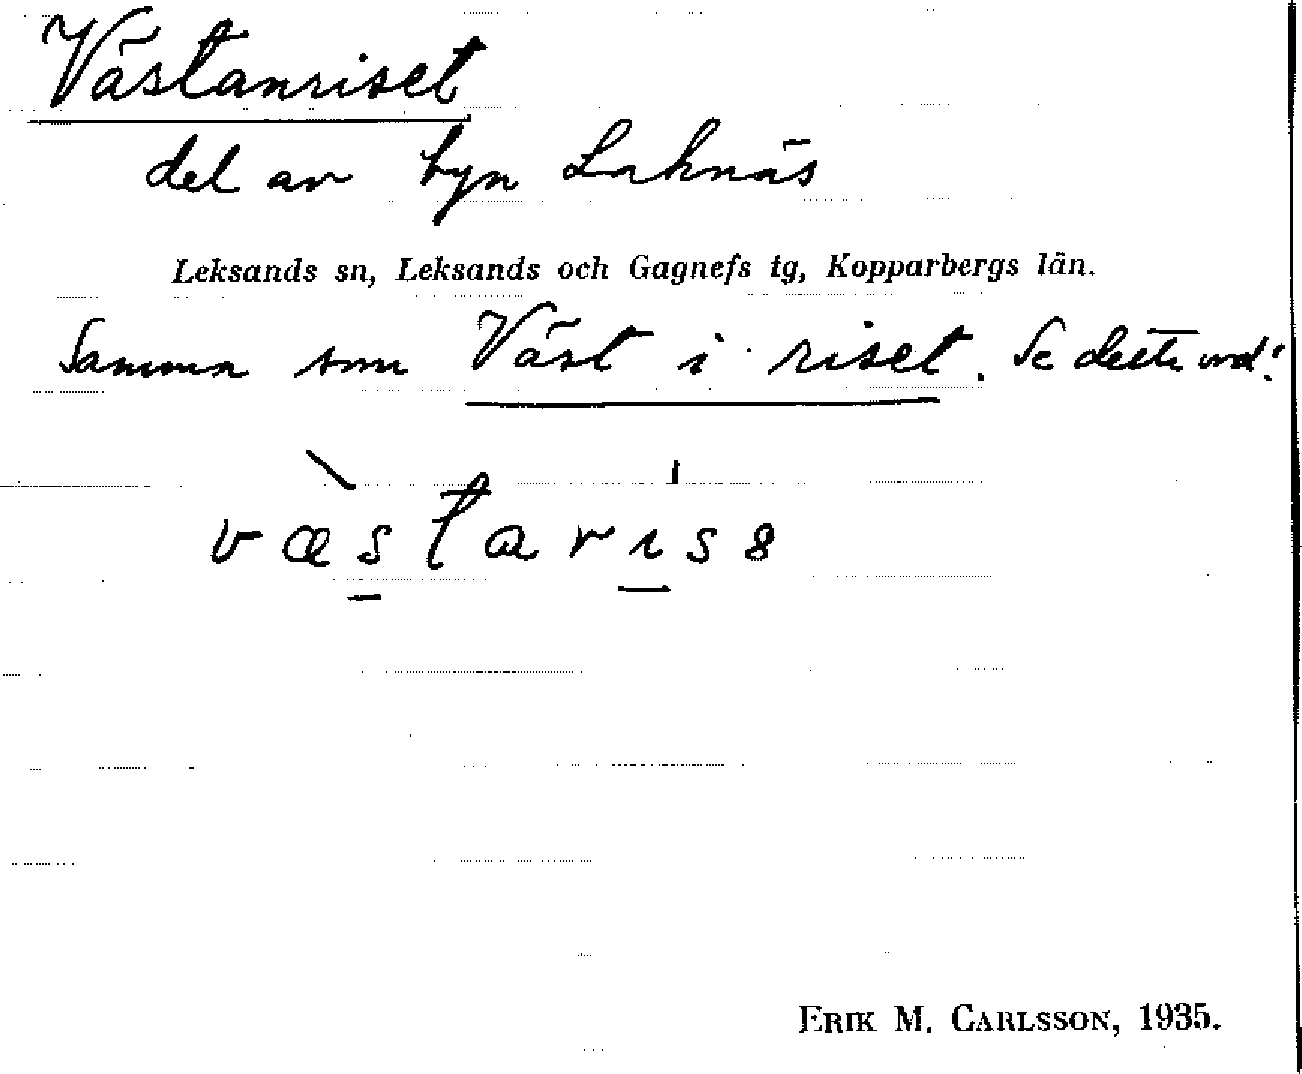 Västanriset
del av byn Laknäs
Leksands sn, Leksands och Gagnefs tg, Kopparbergs län.
Samma som Väst i riset. Se detta ord!
væstarıss
ERIK M. CARLSSON, 1935.